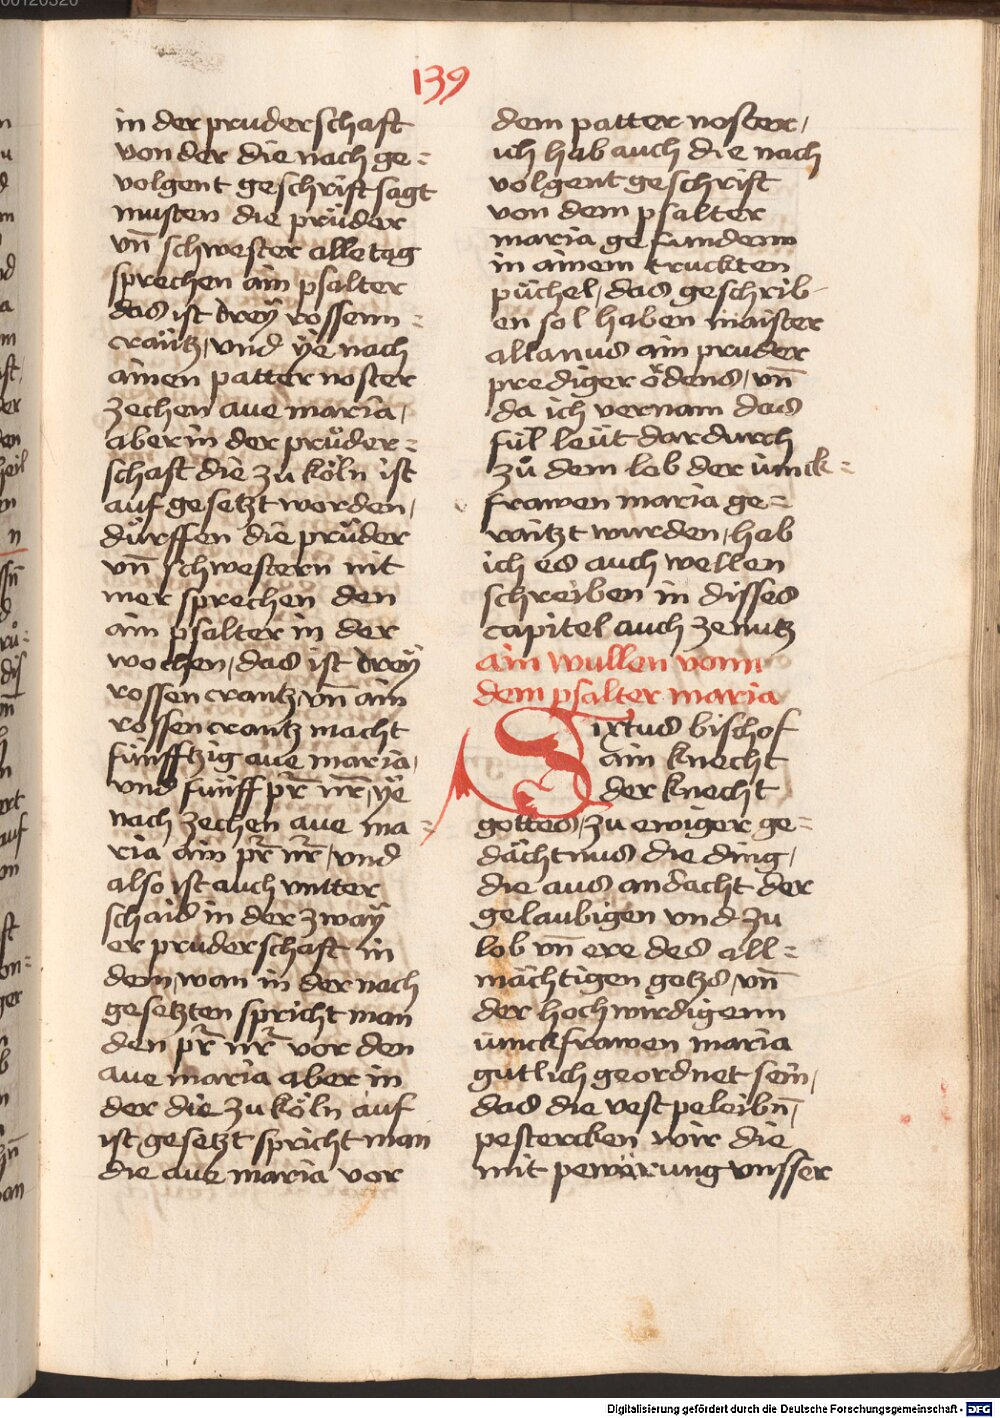 139
in der pruderschaft
von der die nach ge=
volgent geschrift sagt
musten die prüder
vn̄ schwester alle tag
sprechen ain psalter
das ist dreÿ rossenn=
cräntz, vnd ÿe nach
ainen patter noster
zechen aue maria,
aber in der pruͦder=
schaft die zu köln ist
auf gesetzt worden,
dürffen die prüder
vn̄ schwestern nit
mer sprechen den
ain psalter in der
wochen, das ist dreÿ
rossen crantz, vn̄ ain
rossen crantz macht
fünfftzig aue maria,
vnd fünff pr̄ nr̄, ÿe
nach zechen aue ma=
ria ain pr̄ nr̄, vnd
also ist auch vntter
schaid in der zwaÿ
er pruderschaft in
dem, wan in der nach
gesetzten spricht man
den pr̄ nr̄ vor den
aue maria aber in
der die zu köln auf
ist gesetzt spricht man
die aue maria vor
dem patter noster,
ich hab auch die nach
volgent geschrift
von dem psalter
maria gefundenn
in ainem truckten
püchel, das geschrib-
en sol haben maister
allanus ain pruder
prediger ördens, vn̄
da ich vernam das
fül leüt dardurch
zuͦ dem lob der iunck=
frawen maria ge=
raitzt wurden, hab
ich es auch wellen
schreiben in disses
capitel auch ze nutz
ain wullen vonn
dem psalter maria
Sixtus bischof
ain knecht
der knecht
gottes, zu ewiger ge=
dächtnus die ding,
die aus andacht der
gelaubigen vnd zu
lob vn̄ ere des all=
mächtigen gotzs, vn̄
der hochwirdigenn
iunckfrawen maria
gutlich geordnet sein,
das die vest peleibn̄,
pestercken wir die
mit pewärung vnsser
Digitalisierung gefördert durch die Deutsche Forschungsgemeinschaft - DFG